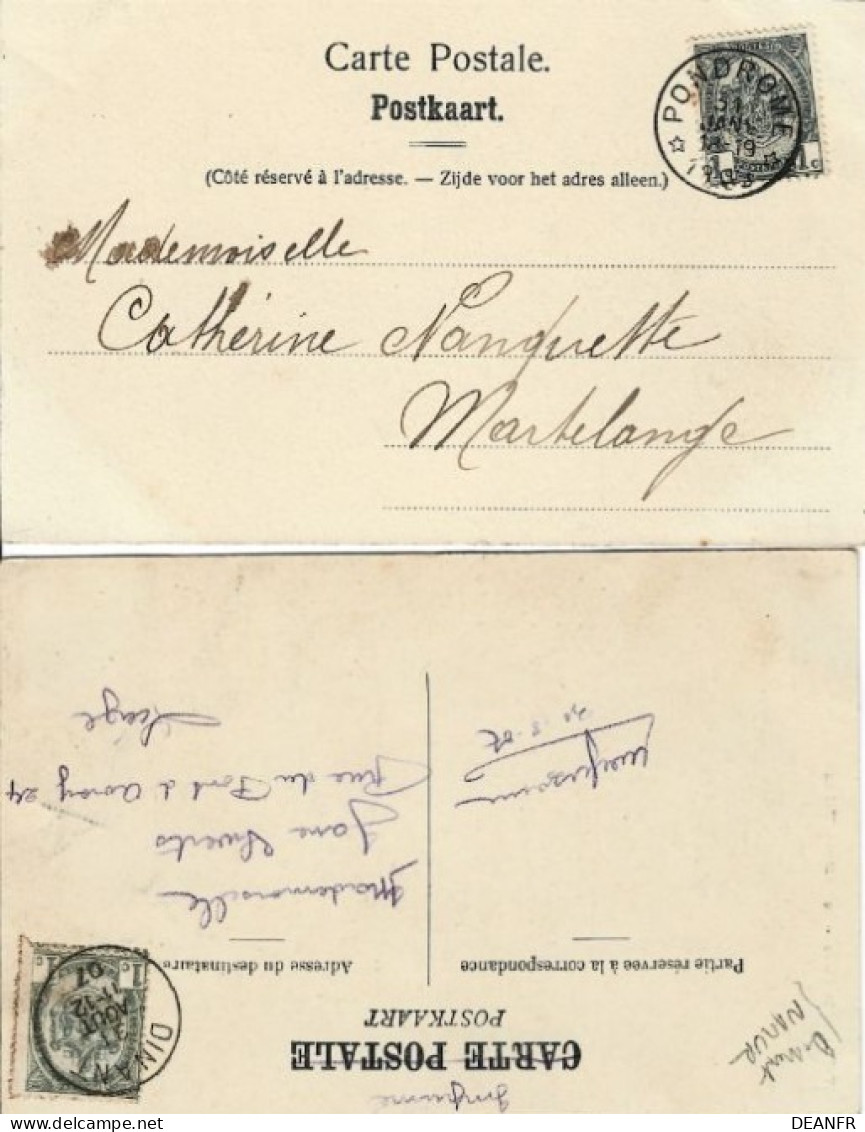 Carte Postale.
Postkaart.
(Côté réservé à l'adresse. — Zijde voor het adres alleen.)
PONDROME
31
JANV
18-19
1903
1 1c
Mademoiselle
Catherine Nanquette
Martelange
Imprimé
CARTE POSTALE
POSTKAART
Dinant
NAMUR
Partie réservée à la correspondance
Adresse du destinataire
DINANT
31
AOUT
11-12
07
1c 1c
Mademoiselle
Jane
Rue du Pont d'Avroy 24
Liège
DEANFR